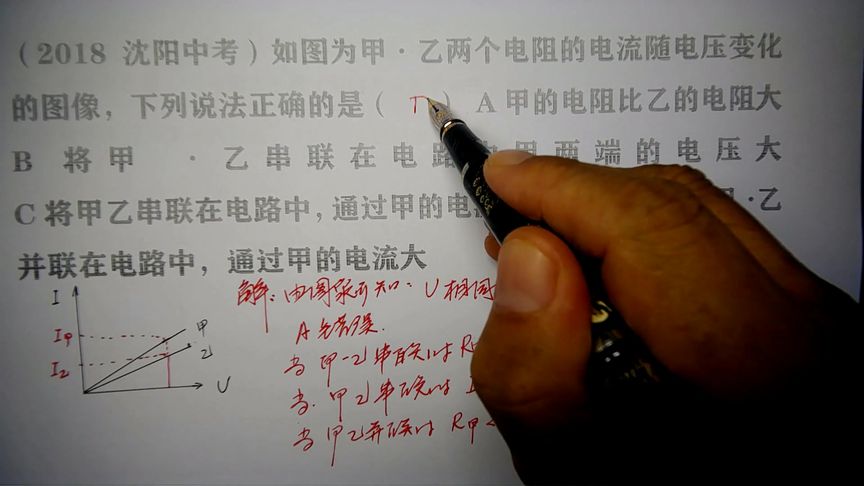 （2018 沈阳中考）如图为甲·乙两个电阻的电流随电压变化
的图像，下列说法正确的是（ ） A甲的电阻比乙的电阻大
B 将甲 · 乙串联在电路 甲两端的电压大
C将甲乙串联在电路中，通过甲的电 甲·乙
并联在电路中，通过甲的电流大
解：由图象可知：U相同
A 错误.
当 甲-乙串联时 R甲
当. 甲乙串联时 I
当 甲乙并联时 R甲<
I
I甲
I乙
甲
乙
U